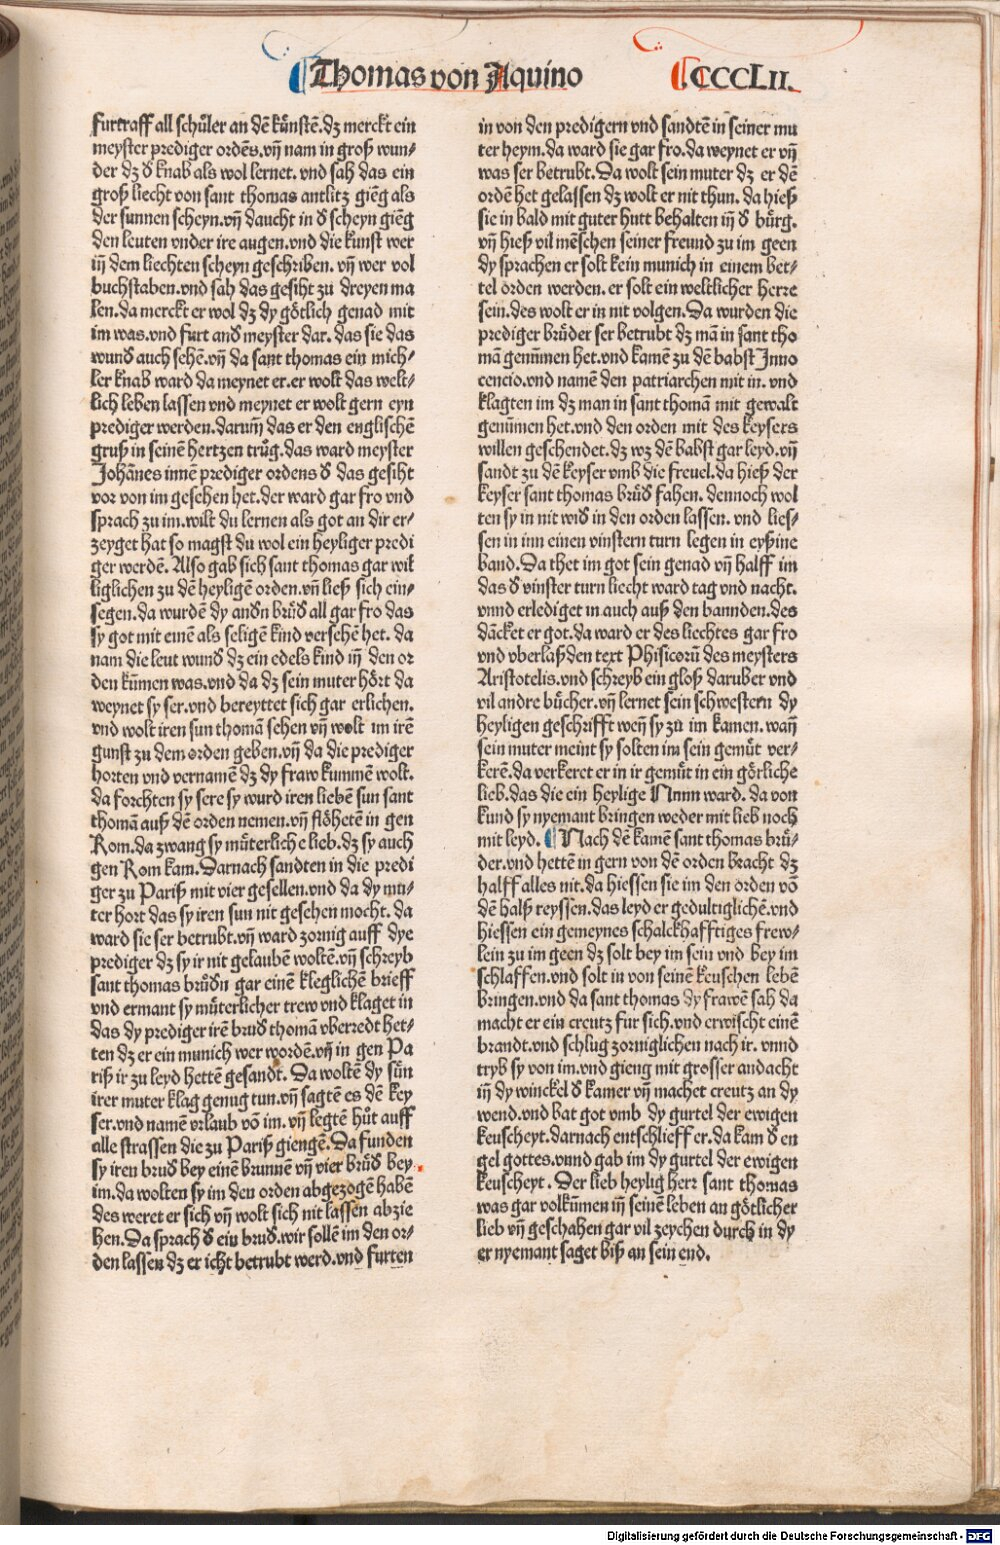 Thomas von Aquino CCCLII.
furtraff all schůler an dē kůnstē.dz merckt ein
meyster prediger ordēs.vñ nam in groß wun⸗
der dz d̕ knab als wol lernet. vnd sah das ein
groß liecht von sant thomas antlitz giēg als
der sunnen scheyn.vñ daucht in d̕ scheyn giēg
den leuten vnder ire augen.vnd die kunst wer
iñ dem liechten scheyn geschriben. vñ wer vol
buchstaben.vnd sah das gesiht zu dreyen ma
len.da merckt er wol dz dy gőtlich genad mit
im was.vnd furt and̕ meyster dar. das sie das
wund̕ auch sehē.vñ da sant thomas ein mich⸗
ler knab ward da meynet er.er wolt das welt⸗
lich leben lassen vnd meynet er wolt gern eyn
prediger werden.darum̄ das er den englischē
gruß in seinē hertzen trůg.das ward meyster
Johānes innē prediger ordens d̕ das gesiht
vor von im gesehen het.der ward gar fro vnd
sprach zu im.wilt du lernen als got an dir er⸗
zeyget hat so magst du wol ein heyliger predi
ger werdē. Also gab sich sant thomas gar wil
liglichen zu dē heyligē orden.vñ ließ sich ein⸗
segen.da wurdē dy and̕n brůd̕ all gar fro das
sy got mit einē als seligē kind versehē het. da
nam die leut wund̕ dz ein edels kind iñ den or
den kūmen was.vnd da dz sein muter hőrt da
weynet sy ser.vnd bereyttet sich gar erlichen.
vnd wolt iren sun thomā sehen vñ wolt im irē
gunst zu dem orden geben.vñ da die prediger
horten vnd vernamē dz dy fraw kummē wolt.
da forchten sy sere sy wurd iren liebē sun sant
thomā auß dē orden nemen.vñ flőhetē in gen
Rom.da zwang sy můterliche lieb.dz sy auch
gen Rom kam.Darnach sandten in die predi
ger zu Pariß mit vier gesellen.vnd da dy mu⸗
ter hort das sy iren sun nit gesehen mocht. da
ward sie ser betrubt.vñ ward zornig auff dye
prediger dz sy ir nit gelaubē woltē.vñ schreyb
sant thomas brůd̕n gar einē kleglichē brieff
vnd ermant sy můterlicher trew vnd klaget in
das dy prediger irē brud̕ thomā vberredt het⸗
ten dz er ein munich wer wordē.vñ in gen Pa
riß ir zu leyd hettē gesandt. Da woltē dy sůn
irer muter klag genug tun.vñ sagtē es dē key
ser.vnd namē vrlaub vō im. vñ legtē hůt auff
alle strassen die zu Pariß giengē.Da funden
sy iren brud̕ bey einē brunnē vñ vier brůd̕ bey
im.da wolten sy im den orden abgezogē habē
des weret er sich vñ wolt sich nit lassen abzie
hen.Da sprach d̕ ein brud̕.wir sollē im den or⸗
den lassen dz er icht betrubt werd.vnd furten
in von den predigern vnd sandtē in seiner mu
ter heym.da ward sie gar fro.da weynet er vñ
was ser betrubt.Da wolt sein muter dz er dē
ordē het gelassen dz wolt er nit thun. da hieß
sie in bald mit guter hutt behalten iñ d̕ bůrg.
vñ hieß vil mēschen seiner freund zu im geen
dy sprachen er solt kein munich in einem bet⸗
tel orden werden. er solt ein weltlicher herre
sein.des wolt er in nit volgen.Da wurden die
prediger brůder ser betrubt dz mā in sant tho
mā genūmen het.vnd kamē zu dē babst Inno
cencio.vnd namē den patriarchen mit in. vnd
klagten im dz man in sant thomā mit gewalt
genūmen het.vnd den orden mit des keysers
willen geschendet.dz wz dē babst gar leyd.vñ
sandt zu dē keyser vmb die freuel.da hieß der
keyser sant thomas brůd̕ fahen. dennoch wol
ten sy in nit wid̕ in den orden lassen. vnd lies⸗
sen in inn einen vinstern turn legen in eyßine
band.Da thet im got sein genad vñ halff im
das d̕ vinster turn liecht ward tag vnd nacht.
vnnd erlediget in auch auß den bannden.des
dācket er got.da ward er des liechtes gar fro
vnd vberlaß den text Phisicorū des meysters
Aristotelis.vnd schreyb ein gloß daruber vnd
vil andre bůcher.vñ lernet sein schwestern dy
heyligen geschrifft weñ sy zů im kamen. wañ
sein muter meint sy solten im sein gemůt ver⸗
kerē.da verkeret er in ir gemůt in ein gőtliche
lieb.das die ein heylige Nunn ward. da von
kund sy nyemant bringen weder mit lieb noch
mit leyd. Nach dē kamē sant thomas brů⸗
der.vnd hettē in gern von dē orden bracht dz
halff alles nit.da hiessen sie im den orden vō
dē halß reyssen.das leyd er gedultiglichē.vnd
hiessen ein gemeynes schalckhafftiges frew⸗
lein zu im geen dz solt bey im sein vnd bey im
schlaffen.vnd solt in von seinē keuschen lebē
bringen.vnd da sant thomas dy frawē sah da
macht er ein creutz fur sich.vnd erwischt einē
brandt.vnd schlug zorniglichen nach ir. vnnd
tryb sy von im.vnd gieng mit grosser andacht
iñ dy winckel d̕ kamer vñ machet creutz an dy
wend.vnd bat got vmb dy gurtel der ewigen
keuscheyt.darnach entschlieff er.da kam d̕ en
gel gottes.vnnd gab im dy gurtel der ewigen
keuscheyt. Der lieb heylig herr sant thomas
was gar volkūmen iñ seinē leben an gőtlicher
lieb vñ geschahen gar vil zeychen durch in dy
er nyemant saget biß an sein end.
Digitalisierung gefördert durch die Deutsche Forschungsgemeinschaft - DFG